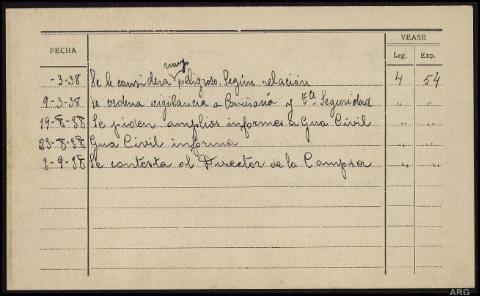 VEASE
FECHA Leg. Exp.
muy
-3-38 Se le considera peligroso. Según relación 4 54
9-3-38 se ordena vigilancia a Comisaría y Seguridad " "
19-8-38 Se piden amplios informes a Gua Civil " "
23-8-38 Gua Civil informa " "
2-9-38 Se contesta al Director de la Campsa " "
ARG